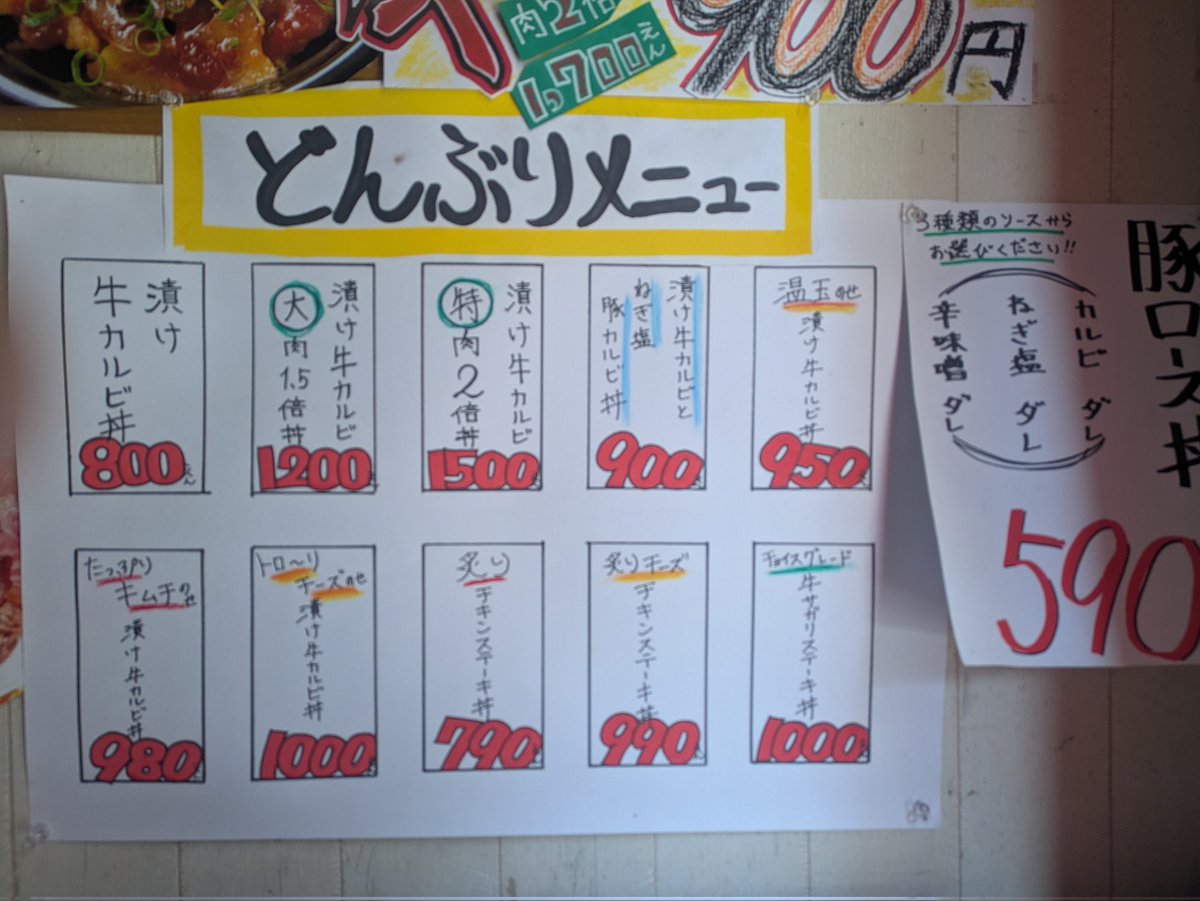 肉2倍
1,700えん
900円
どんぶりメニュー
漬け
牛カルビ丼
800えん
漬け牛カルビ
大 肉1.5倍丼
1200
漬け牛カルビ
特 肉2倍丼
1500
漬け牛カルビと
ねぎ塩
豚カルビ丼
900
温玉のせ
漬け牛カルビ丼
950
たっぷり
キムチのせ
漬け牛カルビ丼
980
トロ〜リ
チーズのせ
漬け牛カルビ丼
1000
炙り
チキンステーキ丼
790
炙りチーズ
チキンステーキ丼
990
チョイスグレード
牛サガリステーキ丼
1000
豚ロース丼
3種類のソースから
お選びください!!
カルビダレ
ねぎ塩ダレ
辛味噌ダレ
590